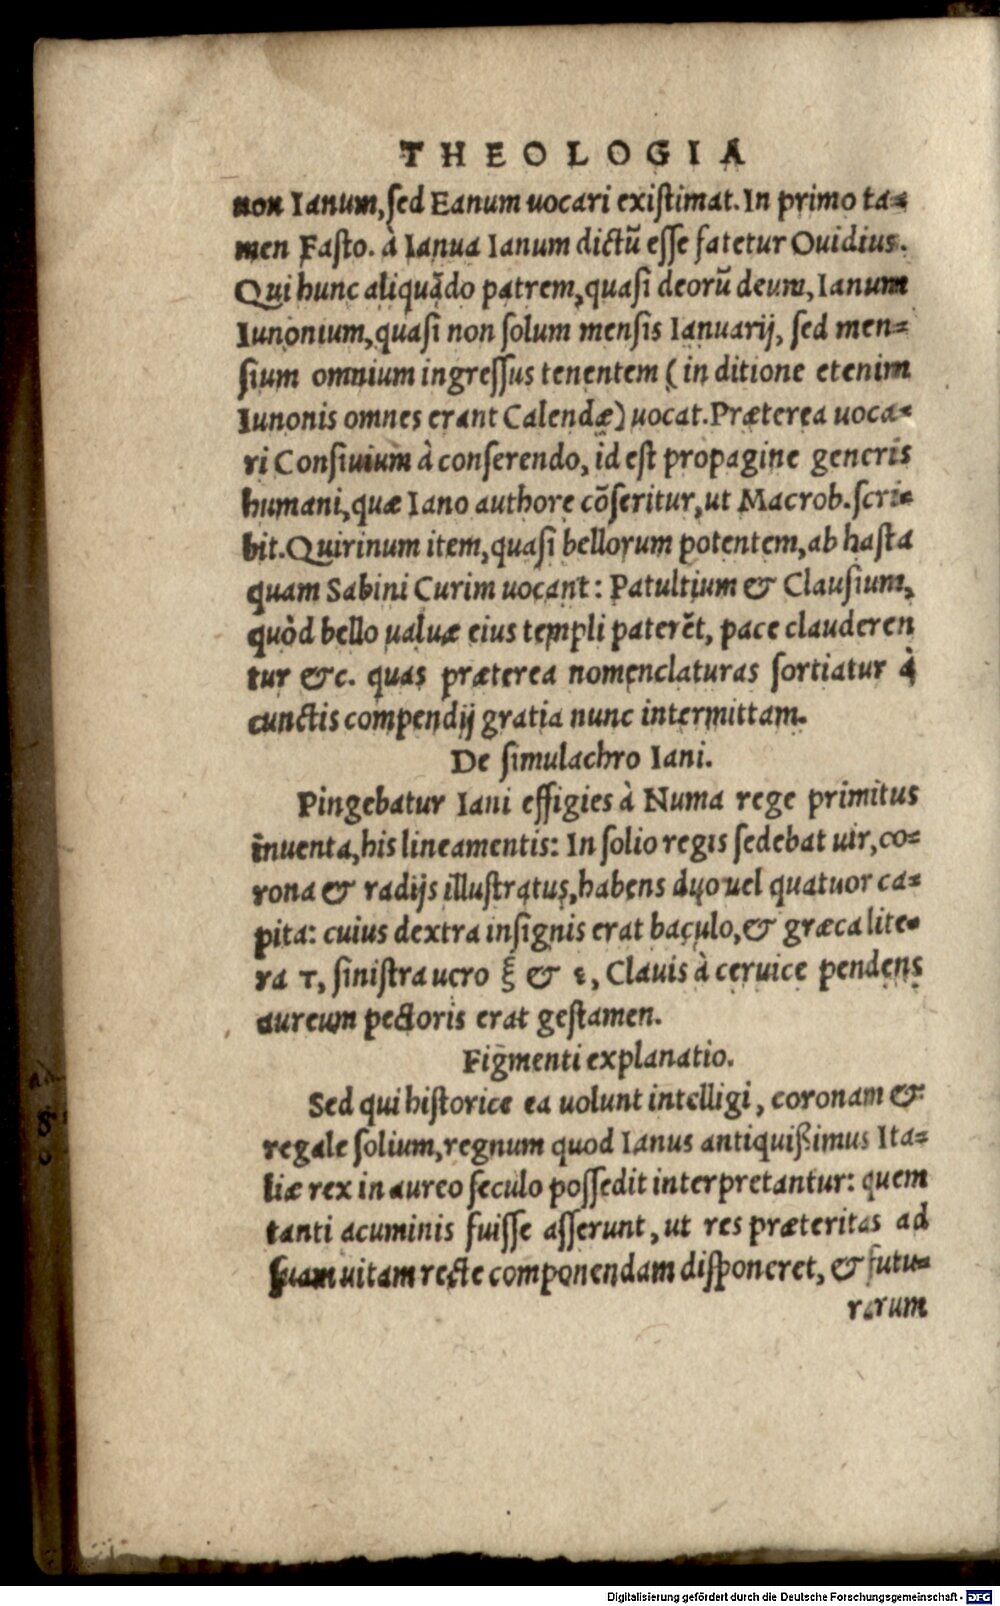 THEOLOGIA
non Ianum, sed Eanum uocari existimat. In primo ta=
men Fasto. à Ianua Ianum dictū esse fatetur Ouidius.
Qui hunc aliquādo patrem, quasi deorū deum, Ianum
Iunonium, quasi non solum mensis Ianuarij, sed men=
sium omnium ingressus tenentem (in ditione etenim
Iunonis omnes erant Calendæ) uocat. Præterea uoca=
ri Consiuium à conserendo, id est propagine generis
humani, quæ Iano authore cōseritur, ut Macrob. scri=
bit. Quirinum item, quasi bellorum potentem, ab hasta
quam Sabini Curim uocant: Patultium & Clausium,
quòd bello ualuæ eius templi paterēt, pace clauderen
tur &c. quas præterea nomenclaturas sortiatur à
cunctis compendij gratia nunc intermittam.
De simulachro Iani.
Pingebatur Iani effigies à Numa rege primitus
inuenta, his lineamentis: In solio regis sedebat uir, co=
rona & radijs illustratus, habens duo uel quatuor ca=
pita: cuius dextra insignis erat baculo, & græca lite=
ra τ, sinistra uero ξ & ε, Clauis à ceruice pendens
aureum pectoris erat gestamen.
Figmenti explanatio.
Sed qui historice ea uolunt intelligi, coronam &
regale solium, regnum quod Ianus antiquißimus Ita=
liæ rex in aureo seculo possedit interpretantur: quem
tanti acuminis fuisse asserunt, ut res præteritas ad
suam uitam recte componendam disponeret, & futu=
rarum
Digitalisierung gefördert durch die Deutsche Forschungsgemeinschaft - DFG